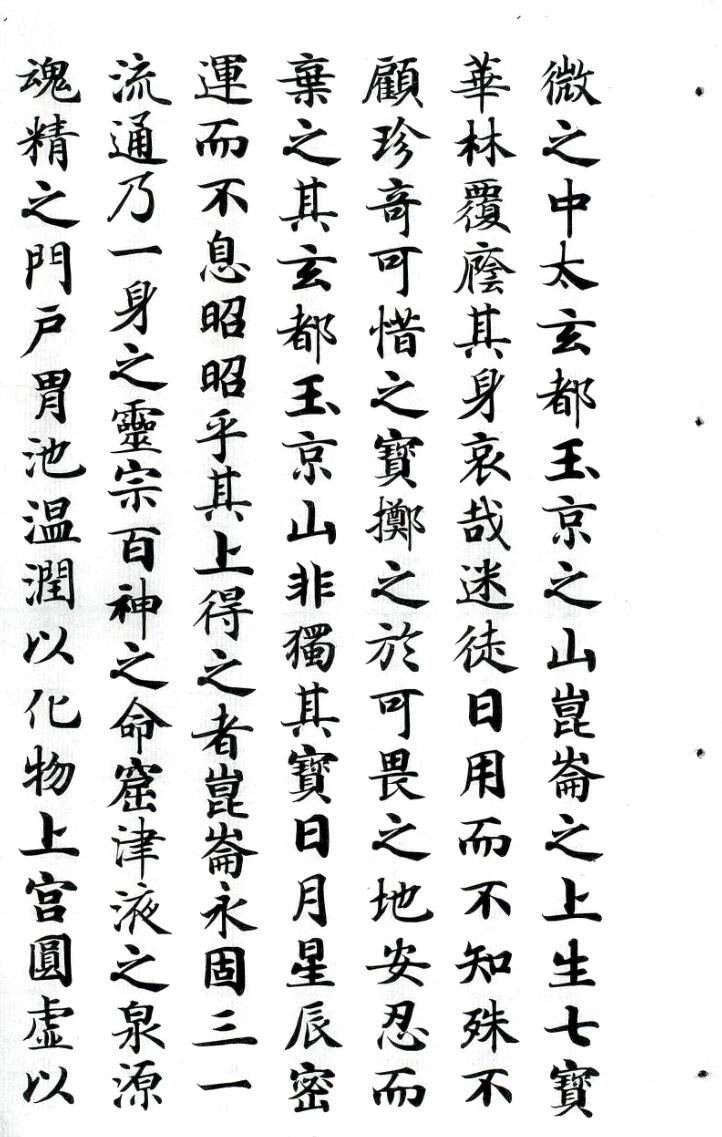 微之中太玄都玉京之山崑崙之上生七寶
華林覆廕其身哀哉迷徒日用而不知殊不
顧珍奇可惜之寶擲之於可畏之地安忍而
棄之其玄都玉京山非獨其寶日月星辰密
運而不息昭昭乎其上得之者崑崙永固三一
流通乃一身之靈宗百神之命窟津液之泉源
魂精之門戶胃池溫潤以化物上宮圓虛以